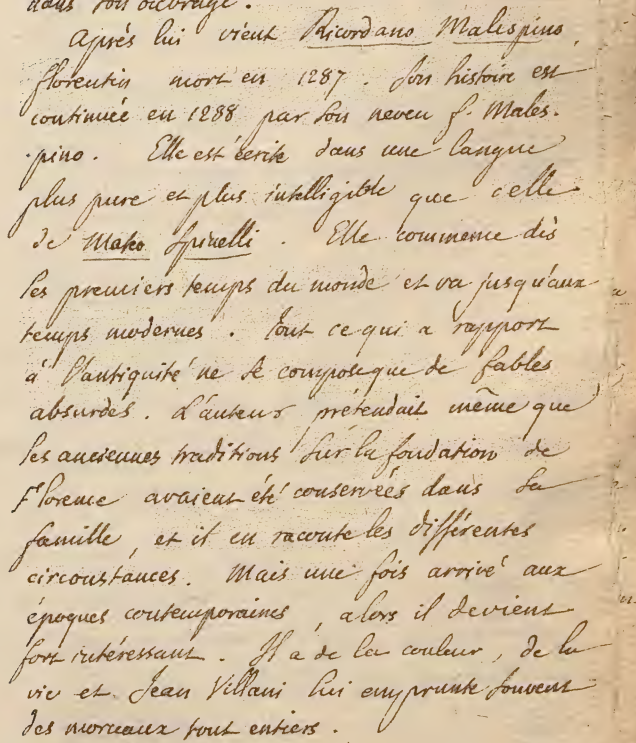 dans son ouvrage.
Après lui vient Ricordano Malespino,
florentin mort en 1287. Son histoire est
continuée en 1288 par son neveu f. Males-
-pino. Elle est écrite dans une langue
plus pure et plus intelligible que celle
de Mateo Spinelli. Elle commence dès
les premiers temps du monde et va jusqu'aux
temps modernes. Tout ce qui a rapport
à l'antiquité ne se compose que de fables
absurdes. L'auteur prétendait même que
les anciennes traditions sur la fondation de
Florence avaient été conservées dans sa
famille, et il en raconte les différentes
circonstances. Mais une fois arrivé aux
époques contemporaines, alors il devient
fort intéressant. Il a de la couleur, de la
vie et Jean Villani lui emprunte souvent
des morceaux tout entiers.